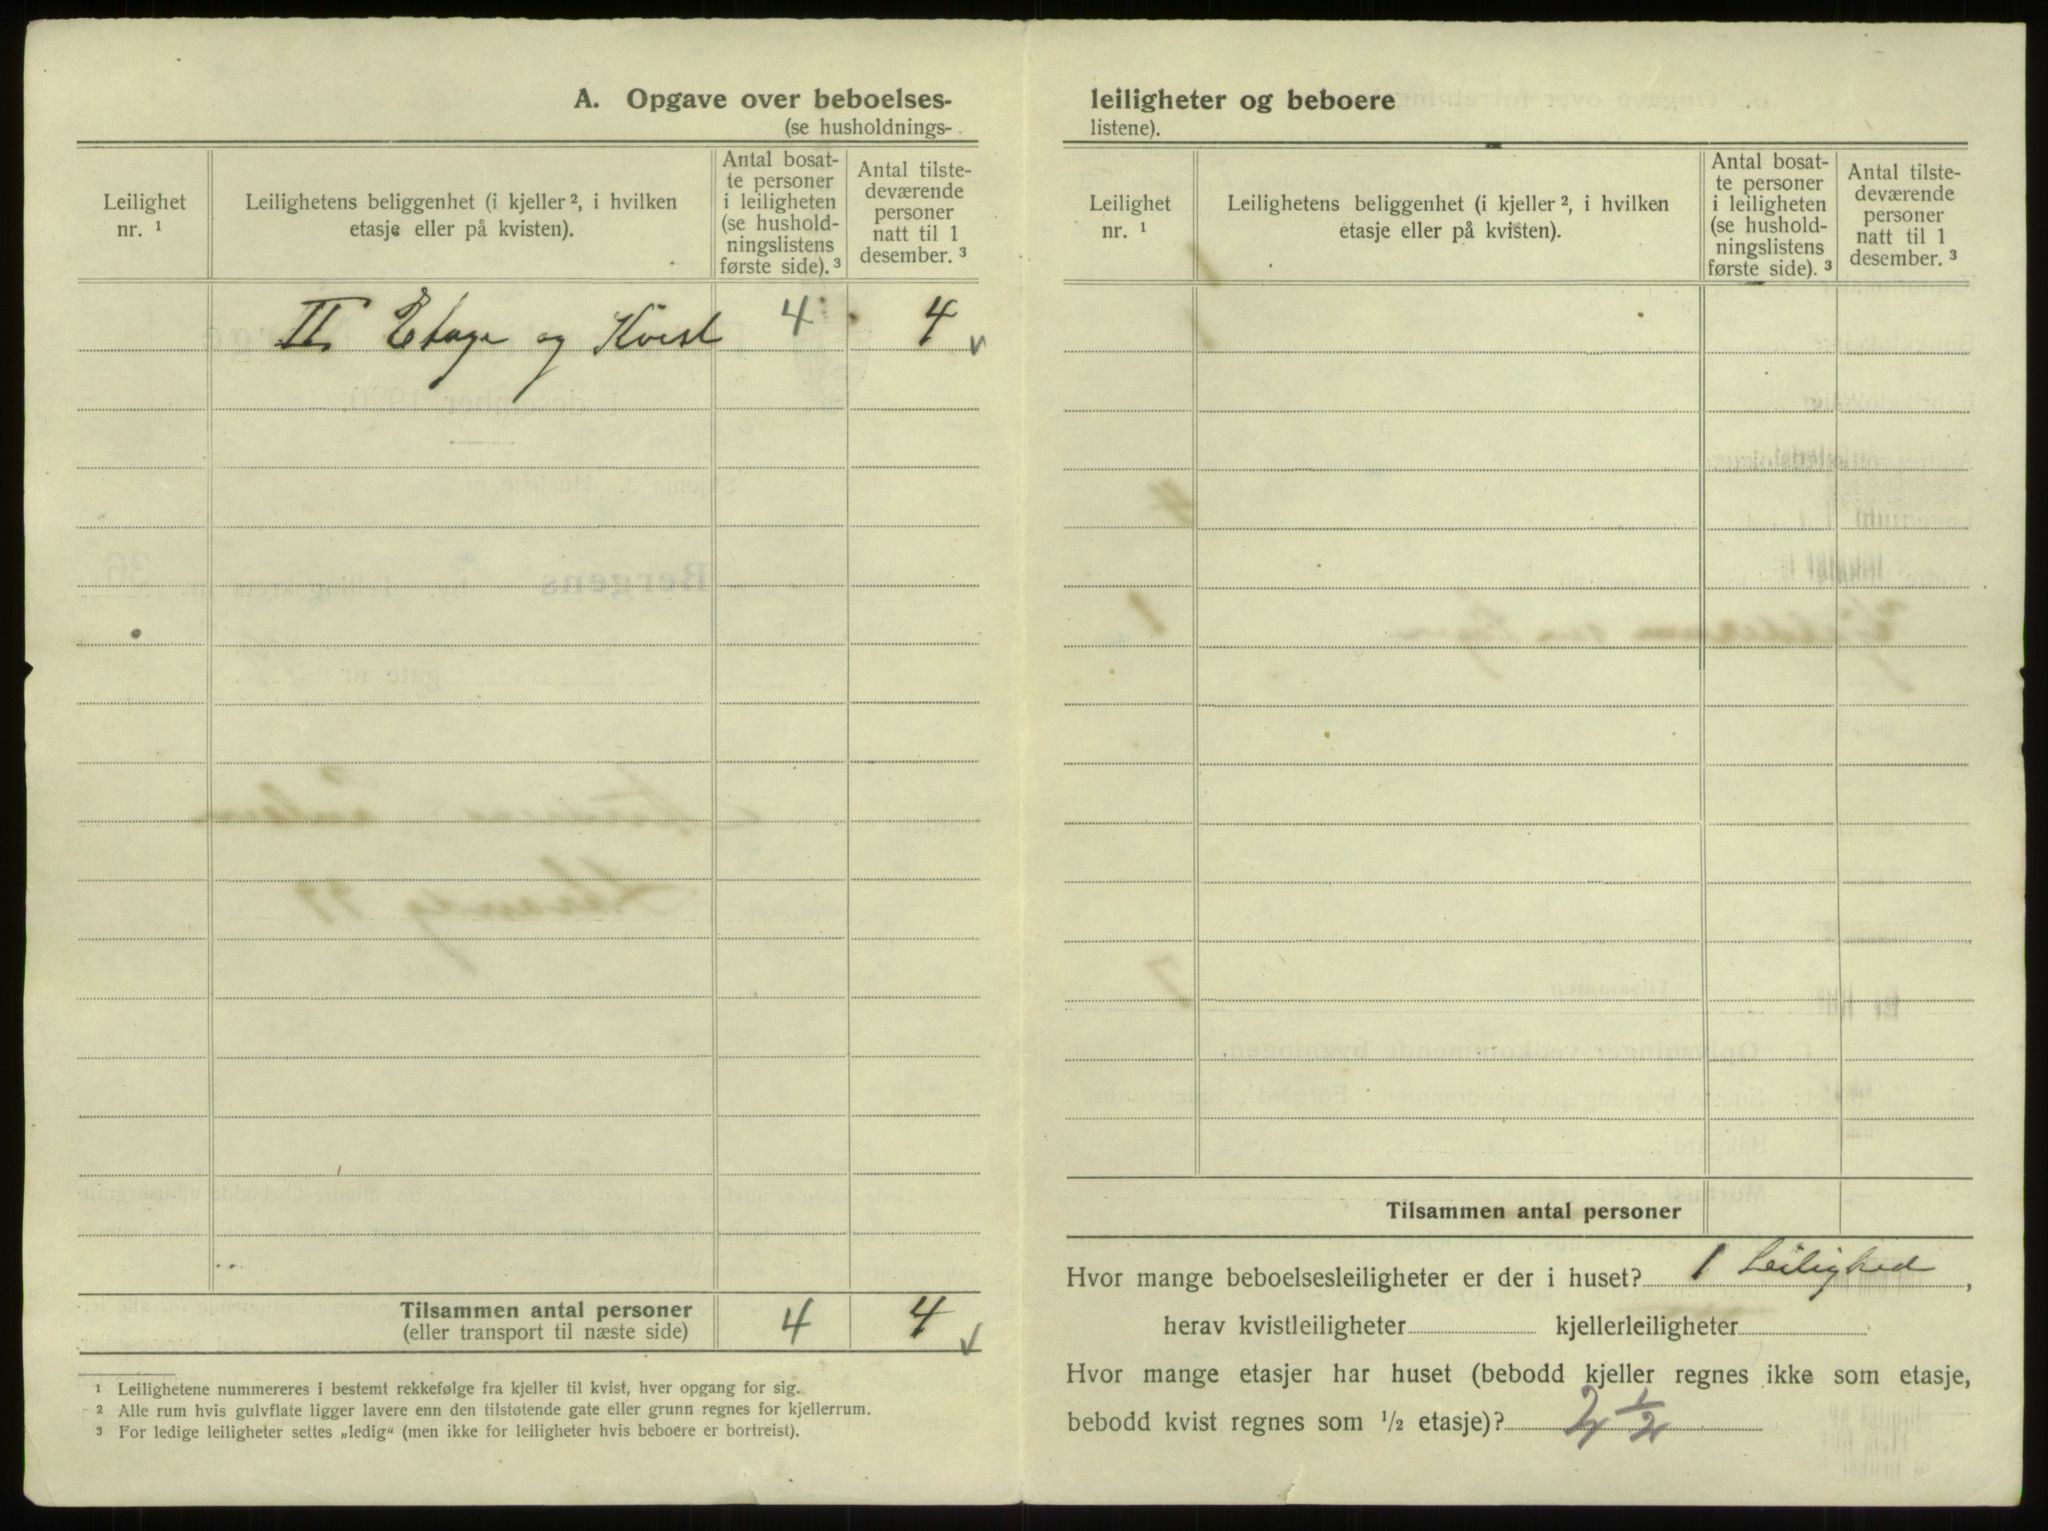 A. Opgave over beboelses-
(se husholdnings-
Leilighet nr. ¹
Leilighetens beliggenhet (i kjeller ², i hvilken
etasje eller på kvisten).
Antal bosat-
te personer
i leiligheten
(se hushold-
ningslistens
første side). ³
Antal tilste-
deværende
personer
natt til 1
desember. ³
II Etage og Kvist 4 4
Tilsammen antal personer 4 4
(eller transport til næste side)
¹ Leilighetene nummereres i bestemt rekkefølge fra kjeller til kvist, hver opgang for sig.
² Alle rum hvis gulvflate ligger lavere enn den tilstøtende gate eller grunn regnes for kjellerrum.
³ For ledige leiligheter settes „ledig" (men ikke for leiligheter hvis beboere er bortreist).
leiligheter og beboere
listene).
Leilighet
nr. ¹
Leilighetens beliggenhet (i kjeller ², i hvilken
etasje eller på kvisten).
Antal bosat-
te personer
i leiligheten
(se hushold-
ningslistens
første side). ³
Antal tilste-
deværende
personer
natt til 1
desember. ³
Tilsammen antal personer
Hvor mange beboelsesleiligheter er der i huset? 1 Leilighed,
herav kvistleiligheter kjellerleiligheter
Hvor mange etasjer har huset (bebodd kjeller regnes ikke som etasje,
bebodd kvist regnes som ½ etasje)? 2 ½